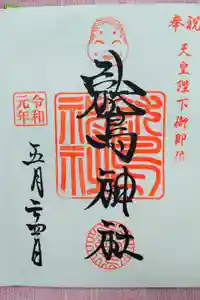 奉祝
天皇陛下御即位
鷲神社
令和
元年
五月二四日